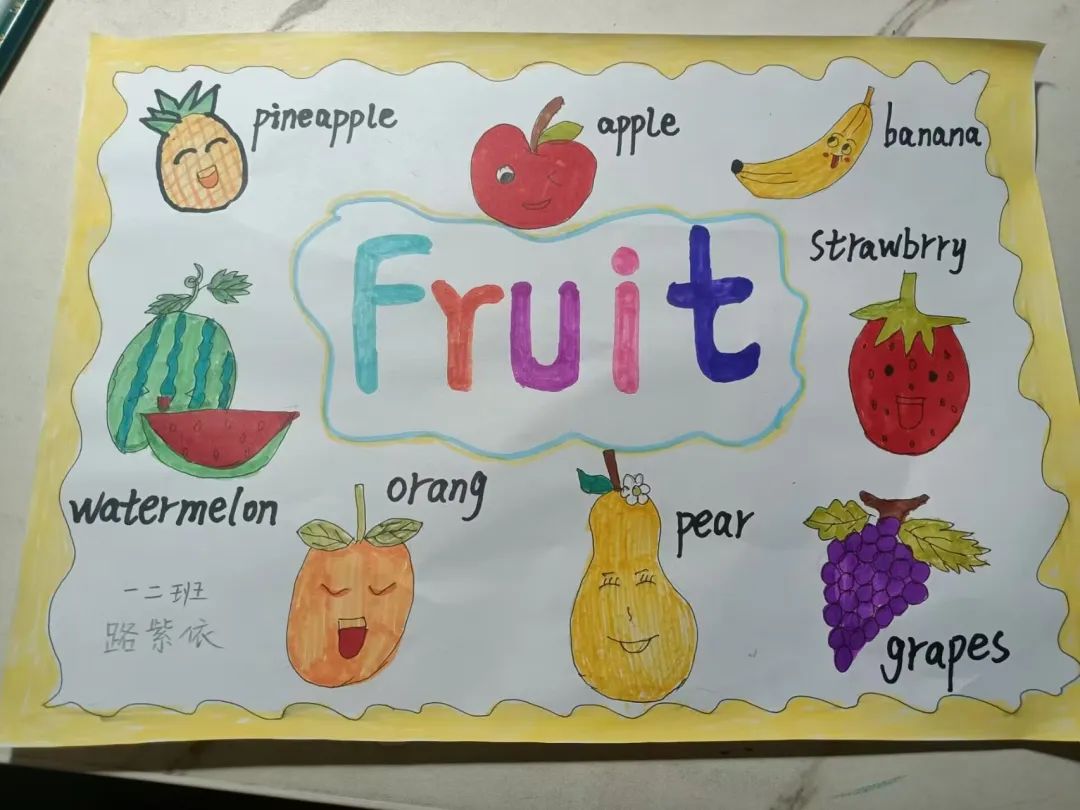 pineapple
apple
banana
Fruit
strawbrry
watermelon
orang
pear
grapes
一二班
路紫依